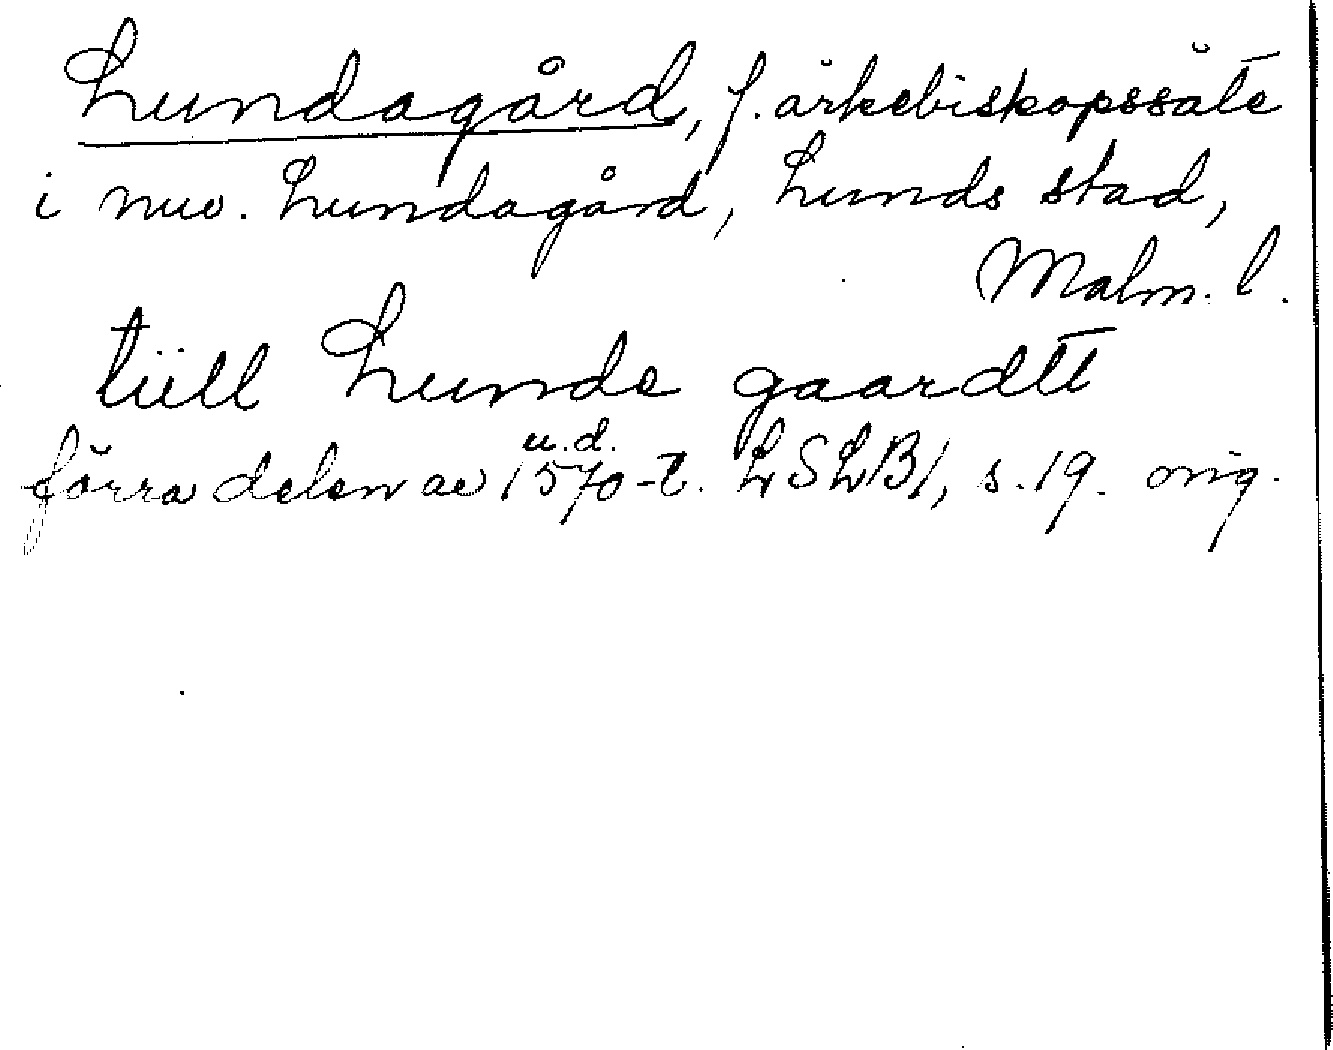 Lundagård, f. ärkebiskopssäte
i nuv. Lundagård, Lunds stad,
Malm. l.
tiill Lunde gaardtt
u.d.
förra delen av 1570-t. LSLB1, s. 19. orig.